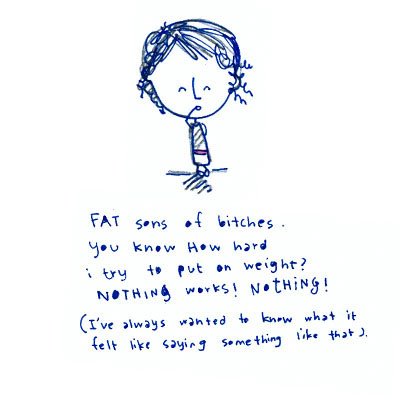 FAT sons of bitches.
you know How hard
i try to put on weight?
NOTHING works! NOTHING!
(I've always wanted to know what it
felt like saying something like that).